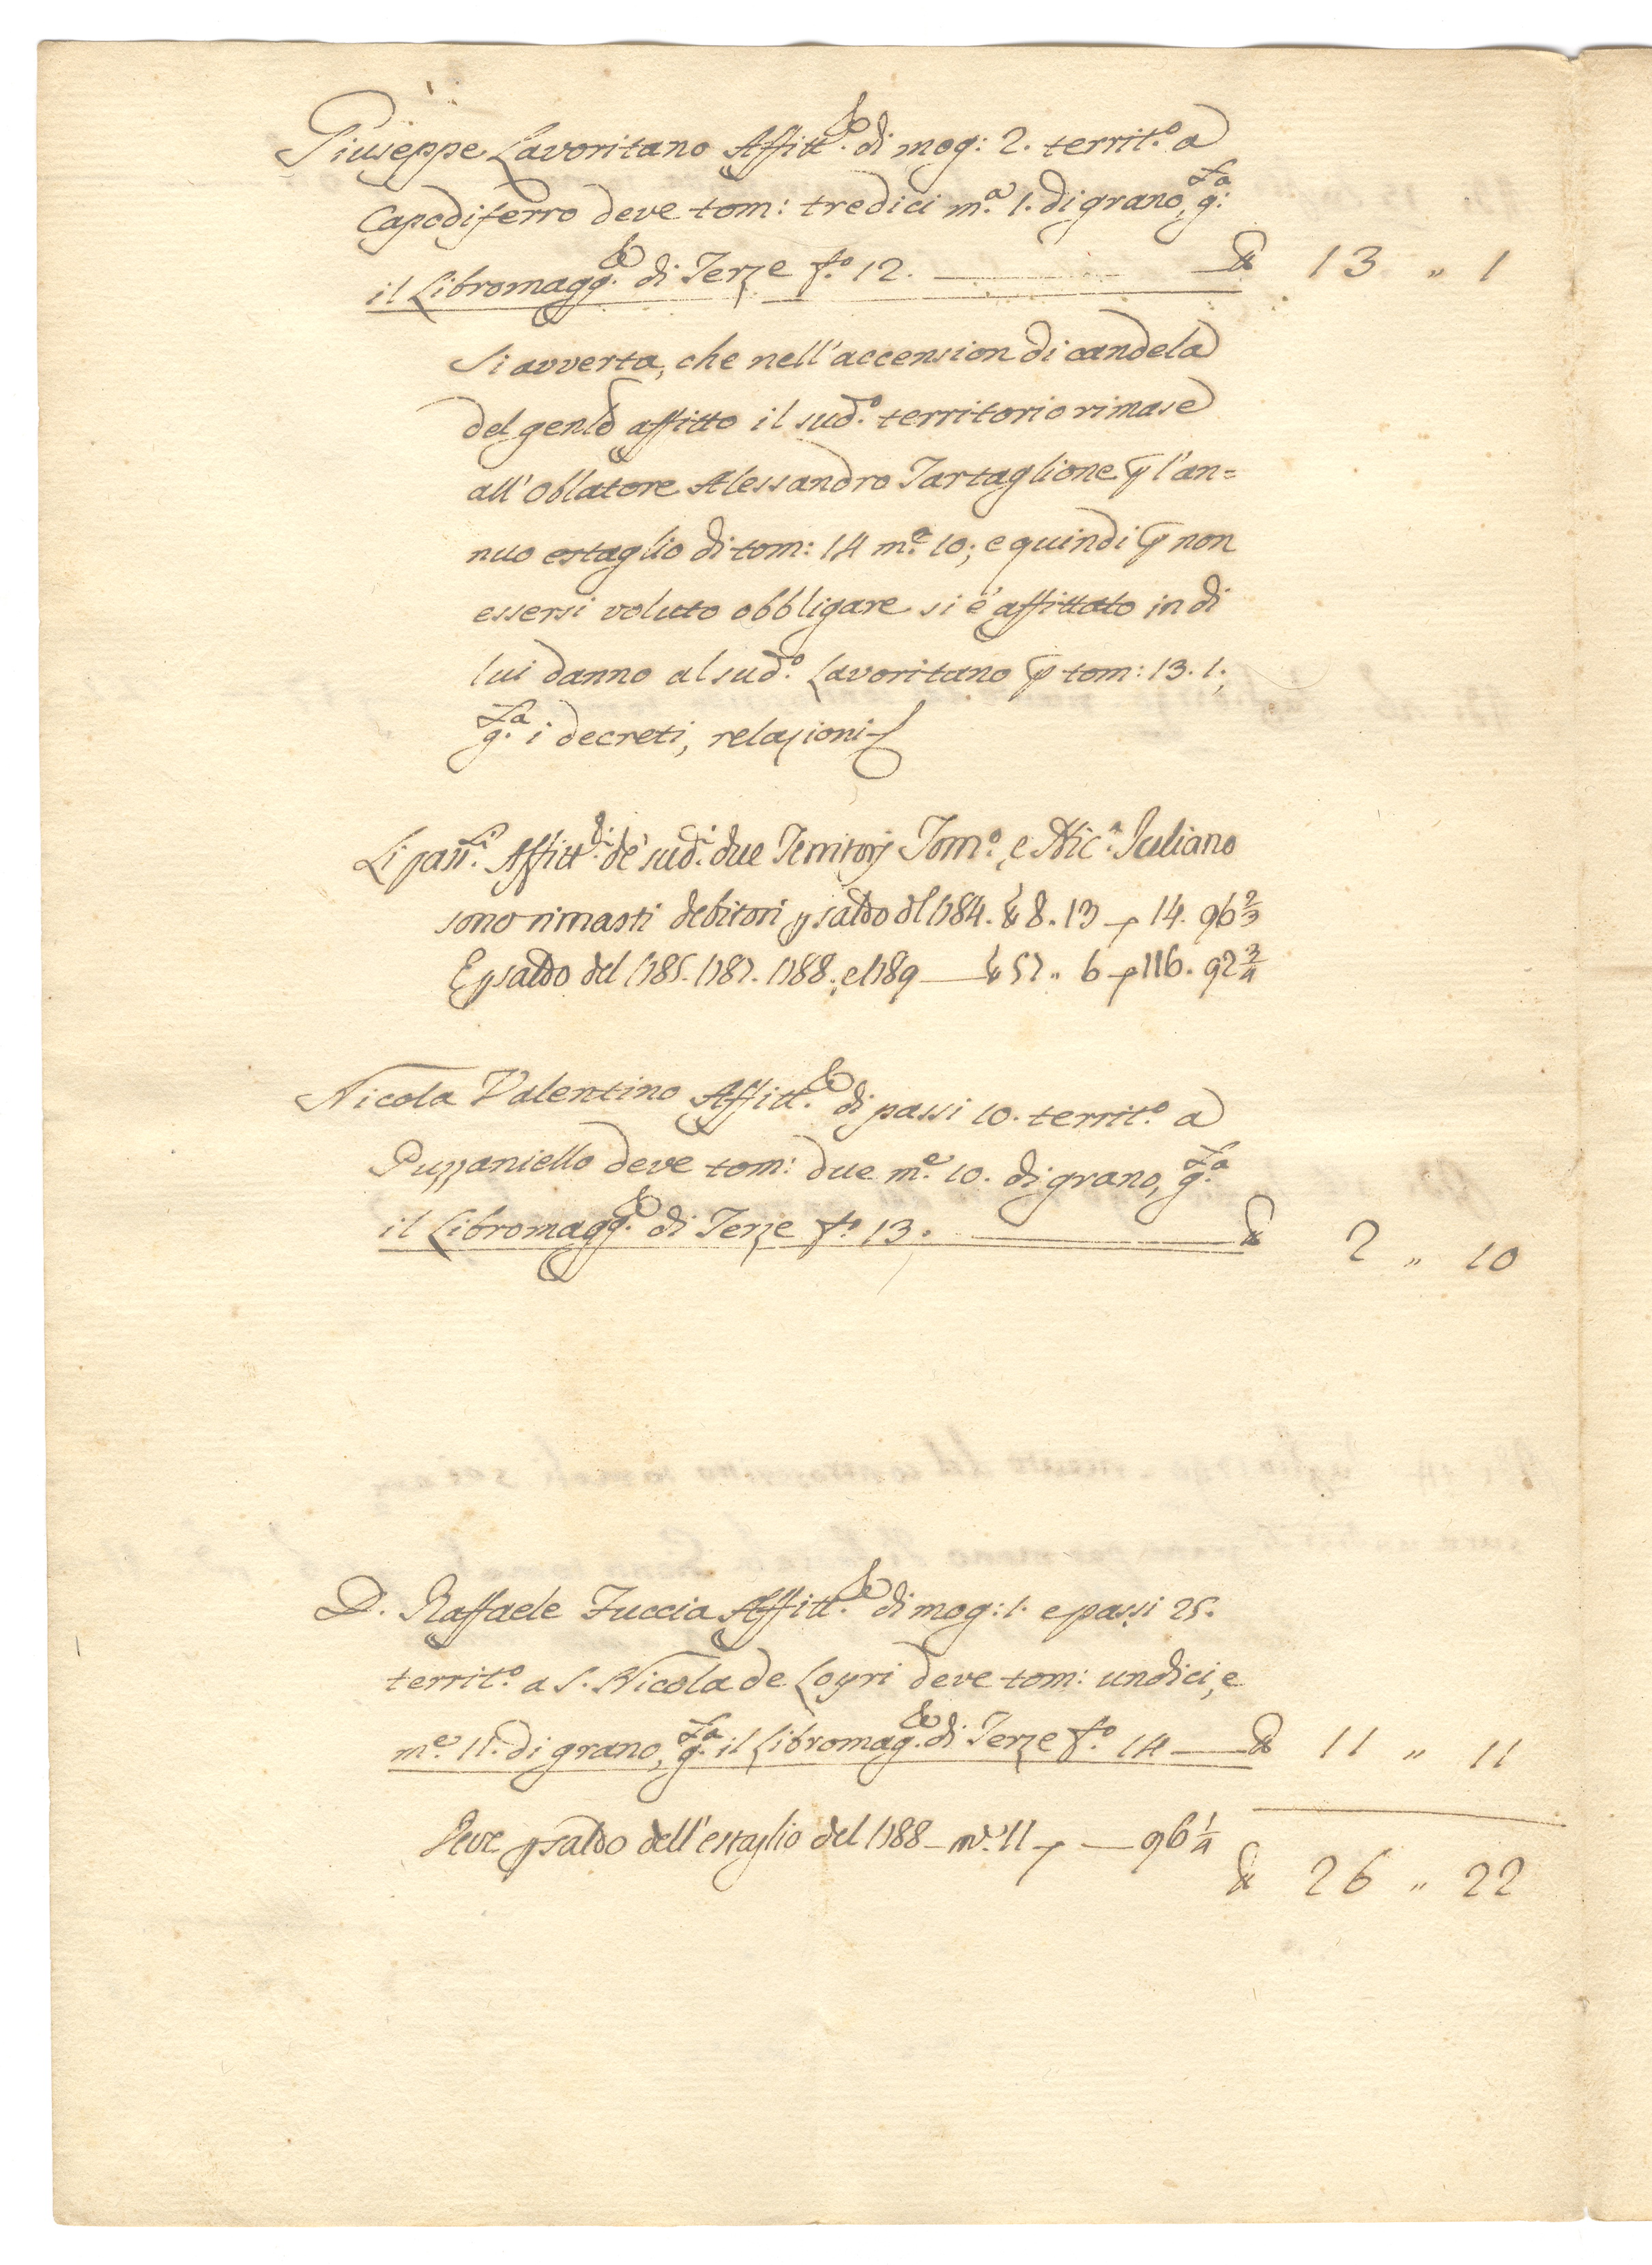 Giuseppe Lavoritano Affitt.e di mog: 2. territ.o a
Capodiferro deve tom: tredici m.a 1. di grano, g.ta
il Libromagg.e di Terze f.o 12. 13 " 1
Si avverta, che nell'accension di candela
del genle affitto il sud.o territorio rimase
all'Oblatore Alessandro Tartaglione p l'an=
nuo estaglio di tom: 14 m.e 10; e quindi p non
essersi voluto obbligare si è affittato in di
lui danno al sud.o Lavoritano p tom: 13. 1.;
g.ta i decreti, relazioni
Li pass.ti Affitt.ri de' sud.i due Territorj Tom.o, e Nic.a Juliano
sono rimasti debitori p saldo del 1784. 8. 13 14. 96 2/3
E p saldo del 1785. 1787. 1788., e 1789 57 " 6 116. 92 3/4
Nicola Valentino Affitt.e di passi 10. territ.o a
Puzzaniello deve tom: due m.e 10. di grano, g.ta
il Libromagg.e di Terze f.o 13. 2 " 10
D. Raffaele Zuccia Affitt.e di mog: 1. e passi 25.
territ.o a S. Nicola de Loyri deve tom: undici, e
m.e 11. di grano, g.ta il Libromag.e di Terze f.o 14 11 " 11
Deve p saldo dell'estaglio del 1788 - m.e 11 96 1/4
26 " 22